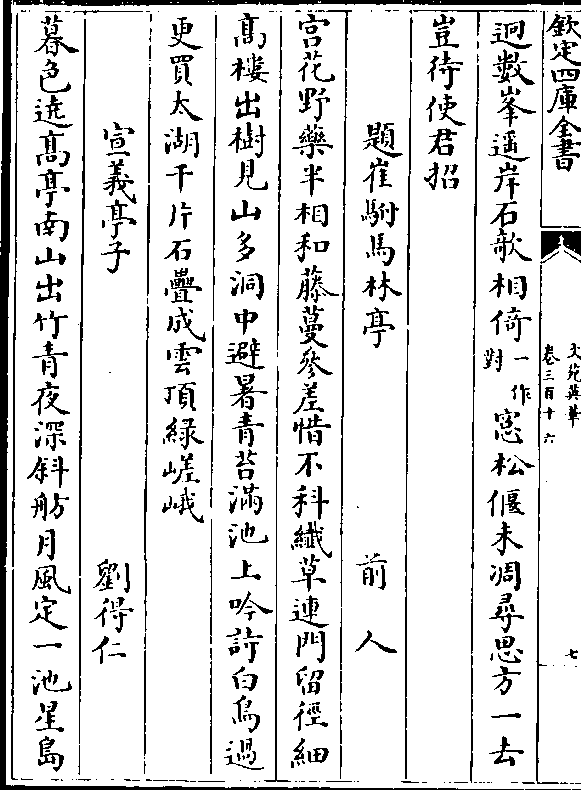 欽定四庫全書
文苑英華
卷三百十六
七
迥數峯遥岸石欹相倚一作對窓松偃未凋尋思方一去
豈待使君招
題崔駙馬林亭 前人
宫花野藥半相和藤蔓參差惜不科纖草連門留徑細
髙樓出樹見山多洞中避暑青苔滿池上吟詩白鳥過
更買太湖千片石疊成雲頂綠嵯峨
宣義亭子 劉得仁
暮色遶髙亭南山出竹青夜深斜舫月風定一池星島